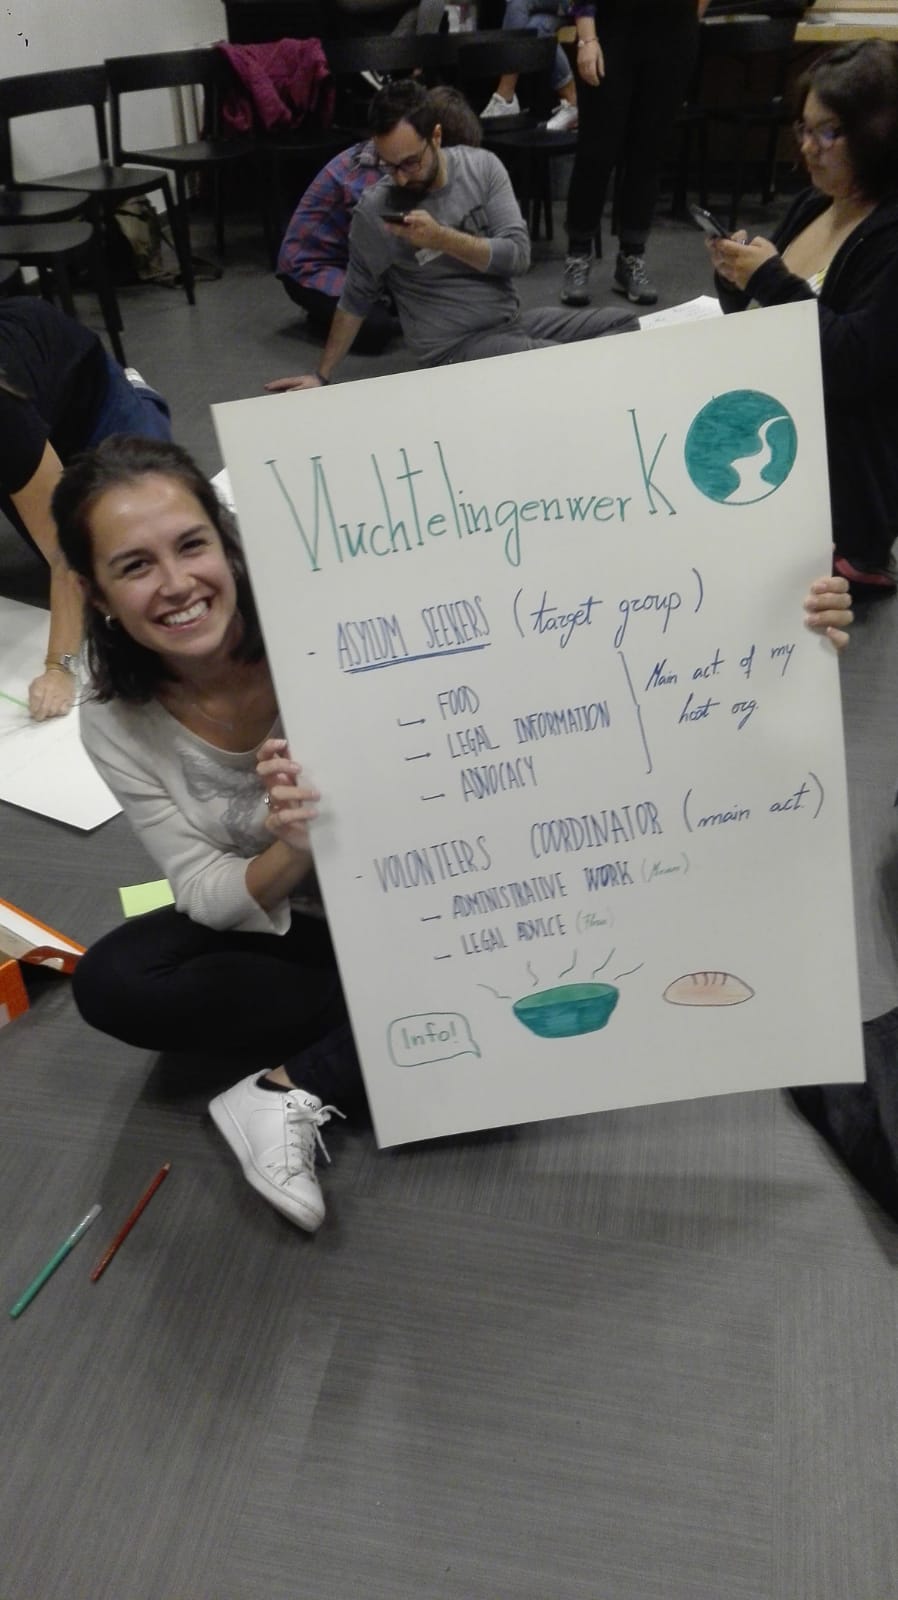 Vluchtelingenwerk
- ASYLUM SEEKERS (target group)
→ FOOD
→ LEGAL INFORMATION
→ ADVOCACY
Main act. of my
host org.
- VOLONTEERS COORDINATOR (main act.)
→ ADMINISTRATIVE WORK
→ LEGAL ADVICE
Info!